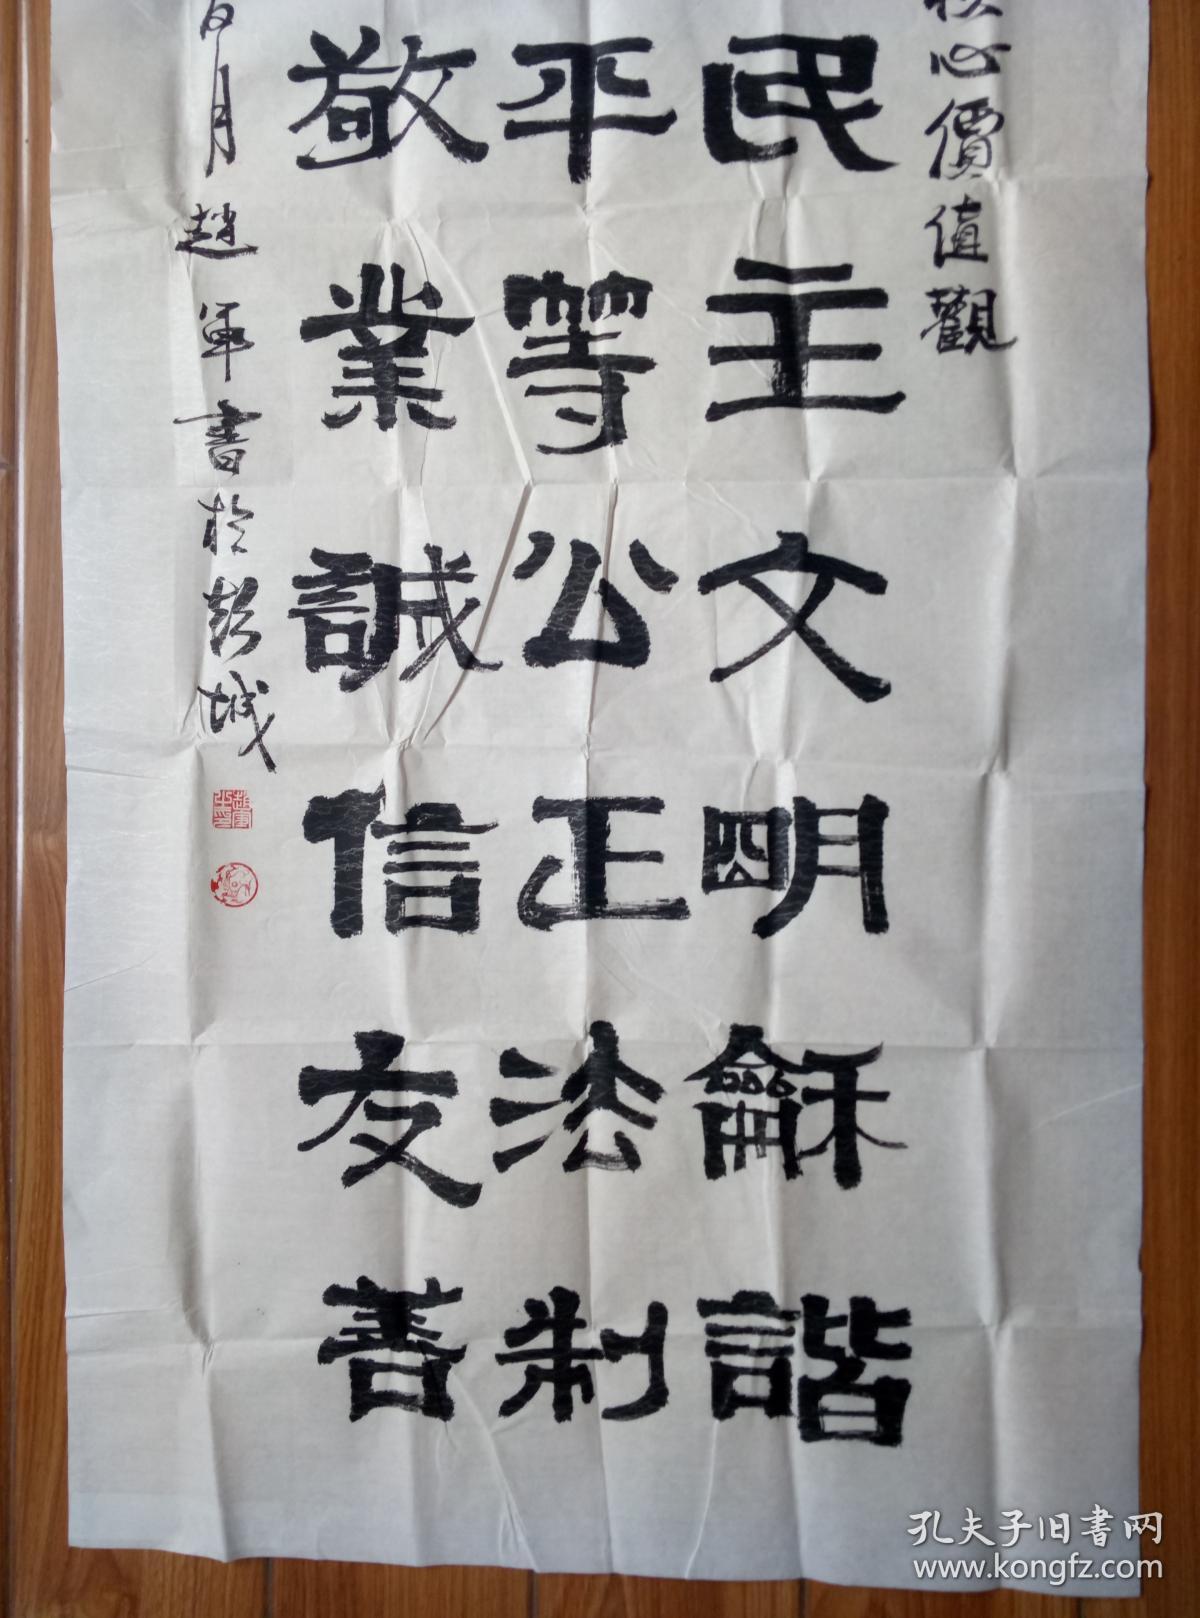 核心價值觀
民主文朙龢諧
平等公正法制
敬業誠信友善
月趙軍書於彭城
趙軍之印
孔夫子旧书网
www.kongfz.com